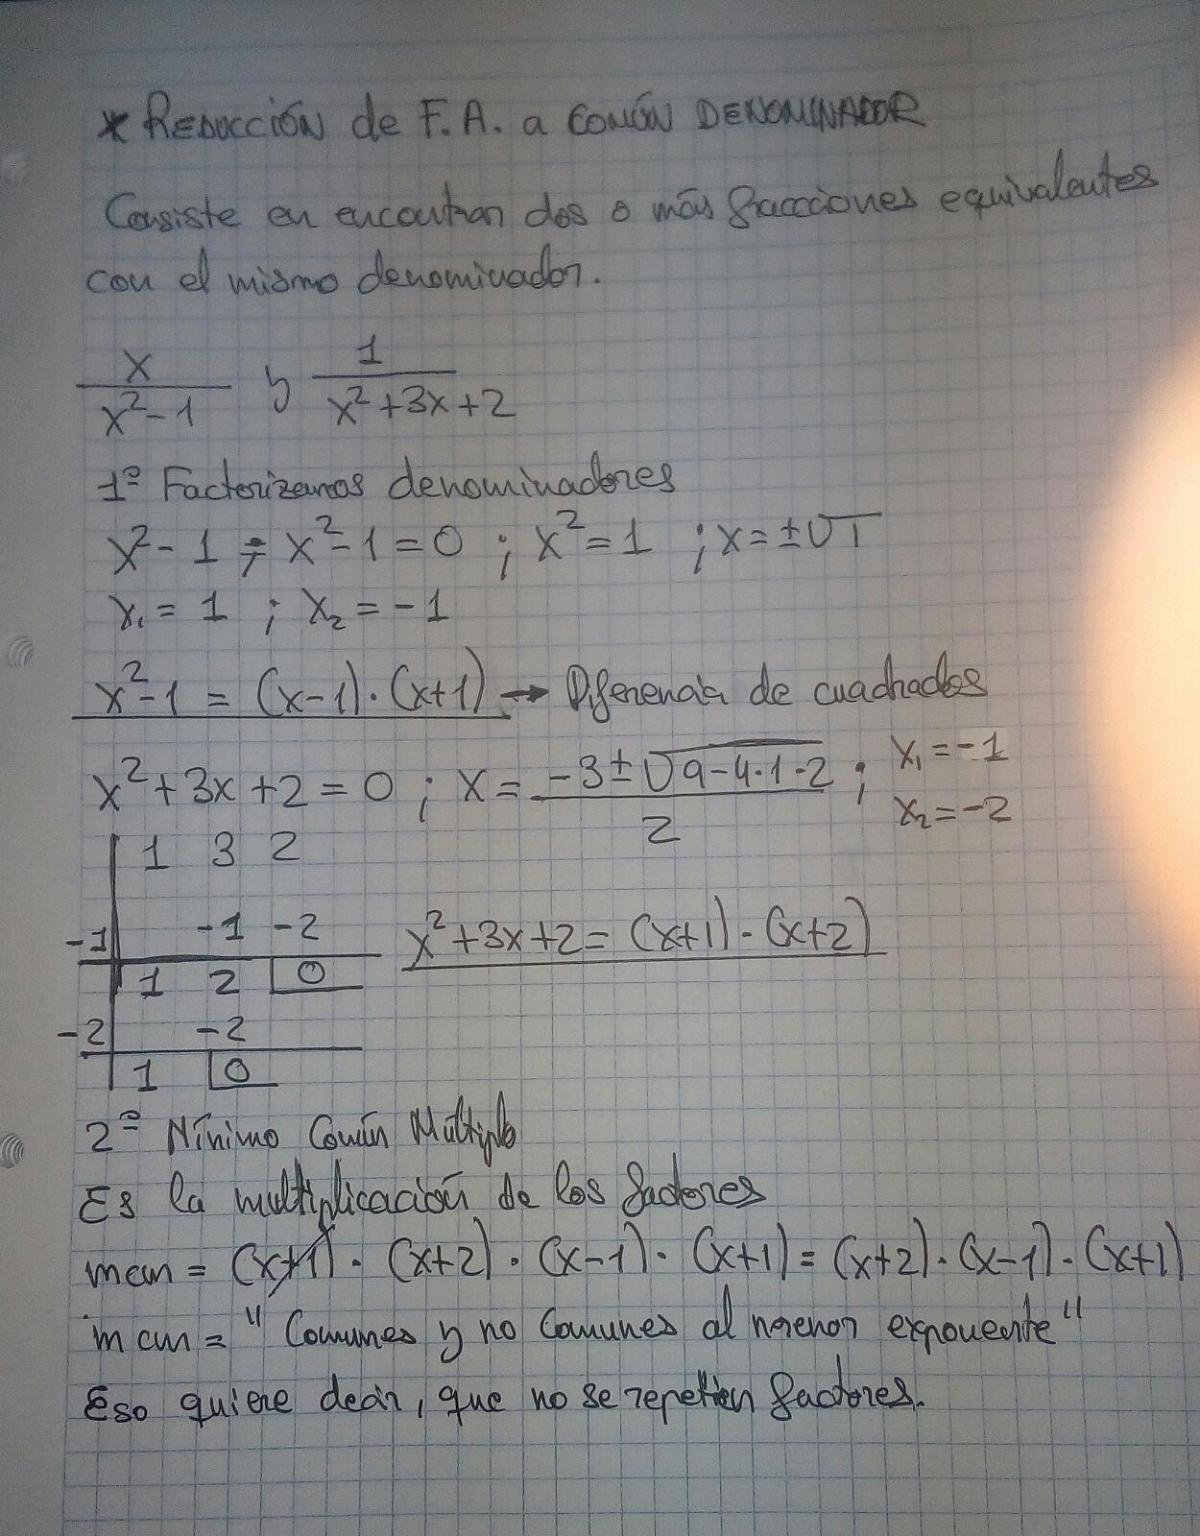 * REDUCCIÓN de F.A. a COMÚN DENOMINADOR
Consiste en encontrar dos o más fracciones equivalentes
con el mismo denominador.
x/(x²-1) y 1/(x²+3x+2)
1º Factorizamos denominadores
x²-1 ; x²-1=0 ; x²=1 ; x=±√1
x₁=1 ; x₂=-1
x²-1 = (x-1)·(x+1) → Diferencia de cuadrados
x²+3x+2=0 ; x=(-3±√(9-4·1·2))/2 ; x₁=-1
x₂=-2
1 3 2
-1 | -1 -2
1 2 0
x²+3x+2= (x+1)·(x+2)
-2 | -2
1 0
2º Mínimo Común Múltiplo
Es la multiplicación de los factores
mcm = (x+1)·(x+2)·(x-1)·(x+1)=(x+2)·(x-1)·(x+1)
mcm = "Comunes y no comunes al menor exponente"
Eso quiere decir, que no se repetien factores.